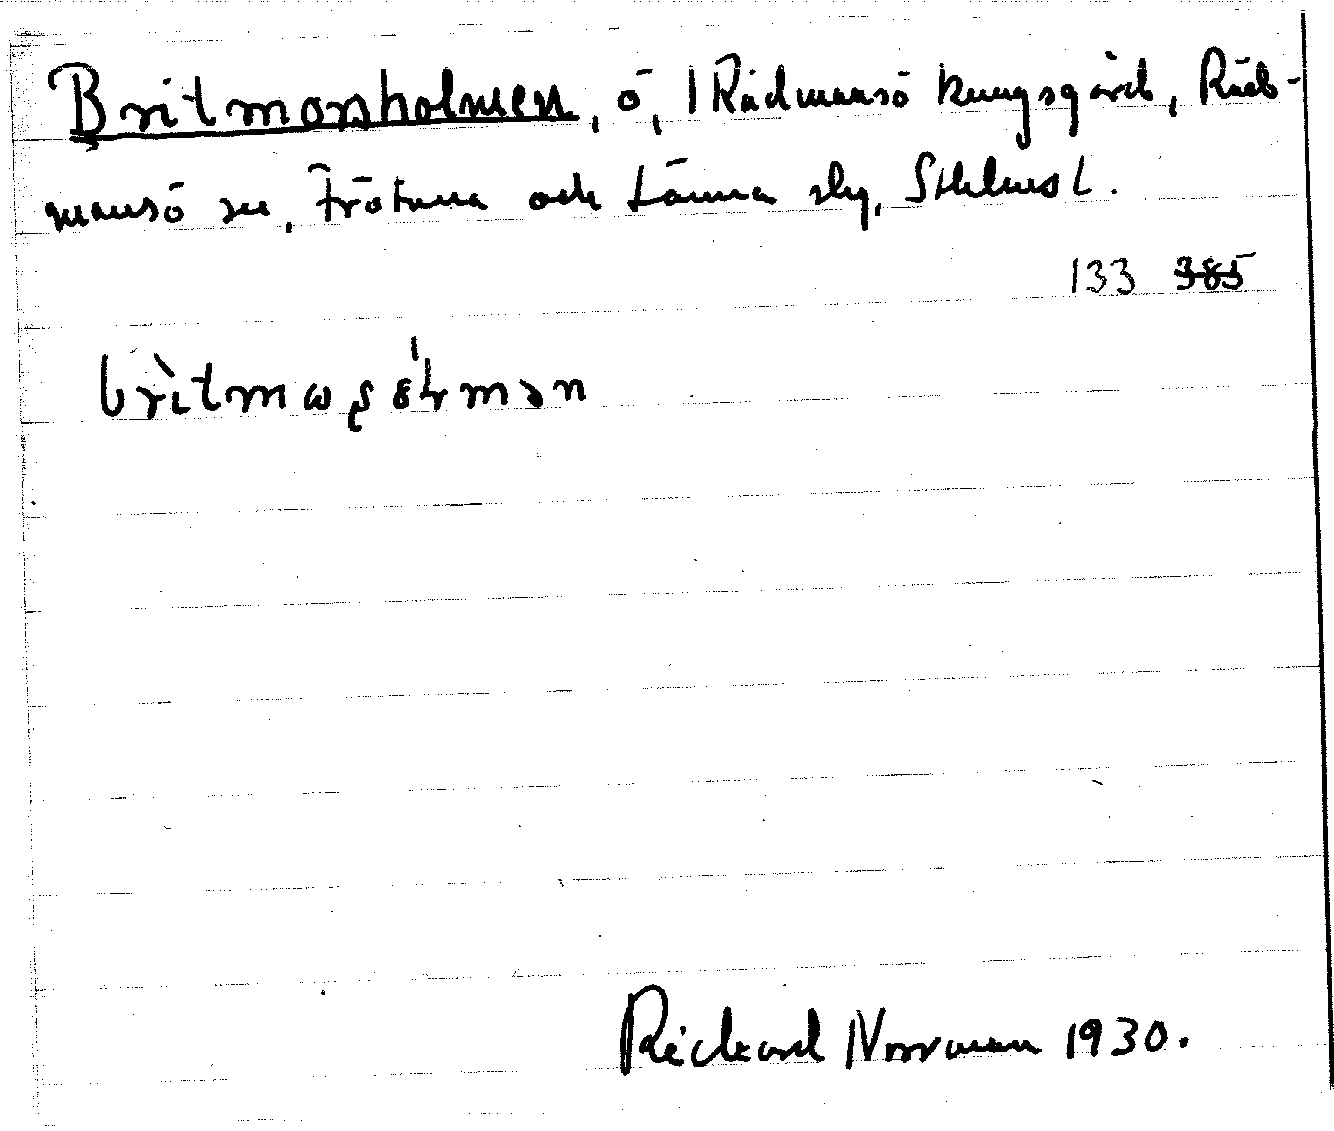 Britmorsholmen, ö, 1 Rådmansö kungsgård, Råd-
mansö sn, Frötuna och Länna slg, Sthlms l.
133 385
Rickard Norrman 1930.